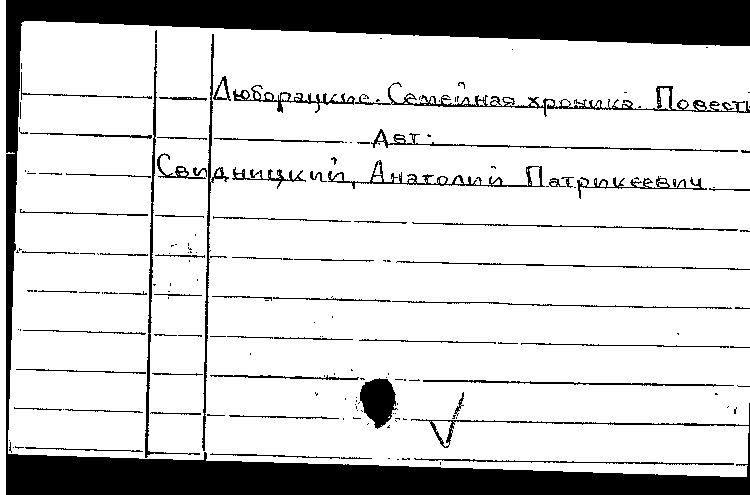 Люборацкие. Семейная хроника. Повесть
Авт:
Свидницкий, Анатолий Патрикеевич.